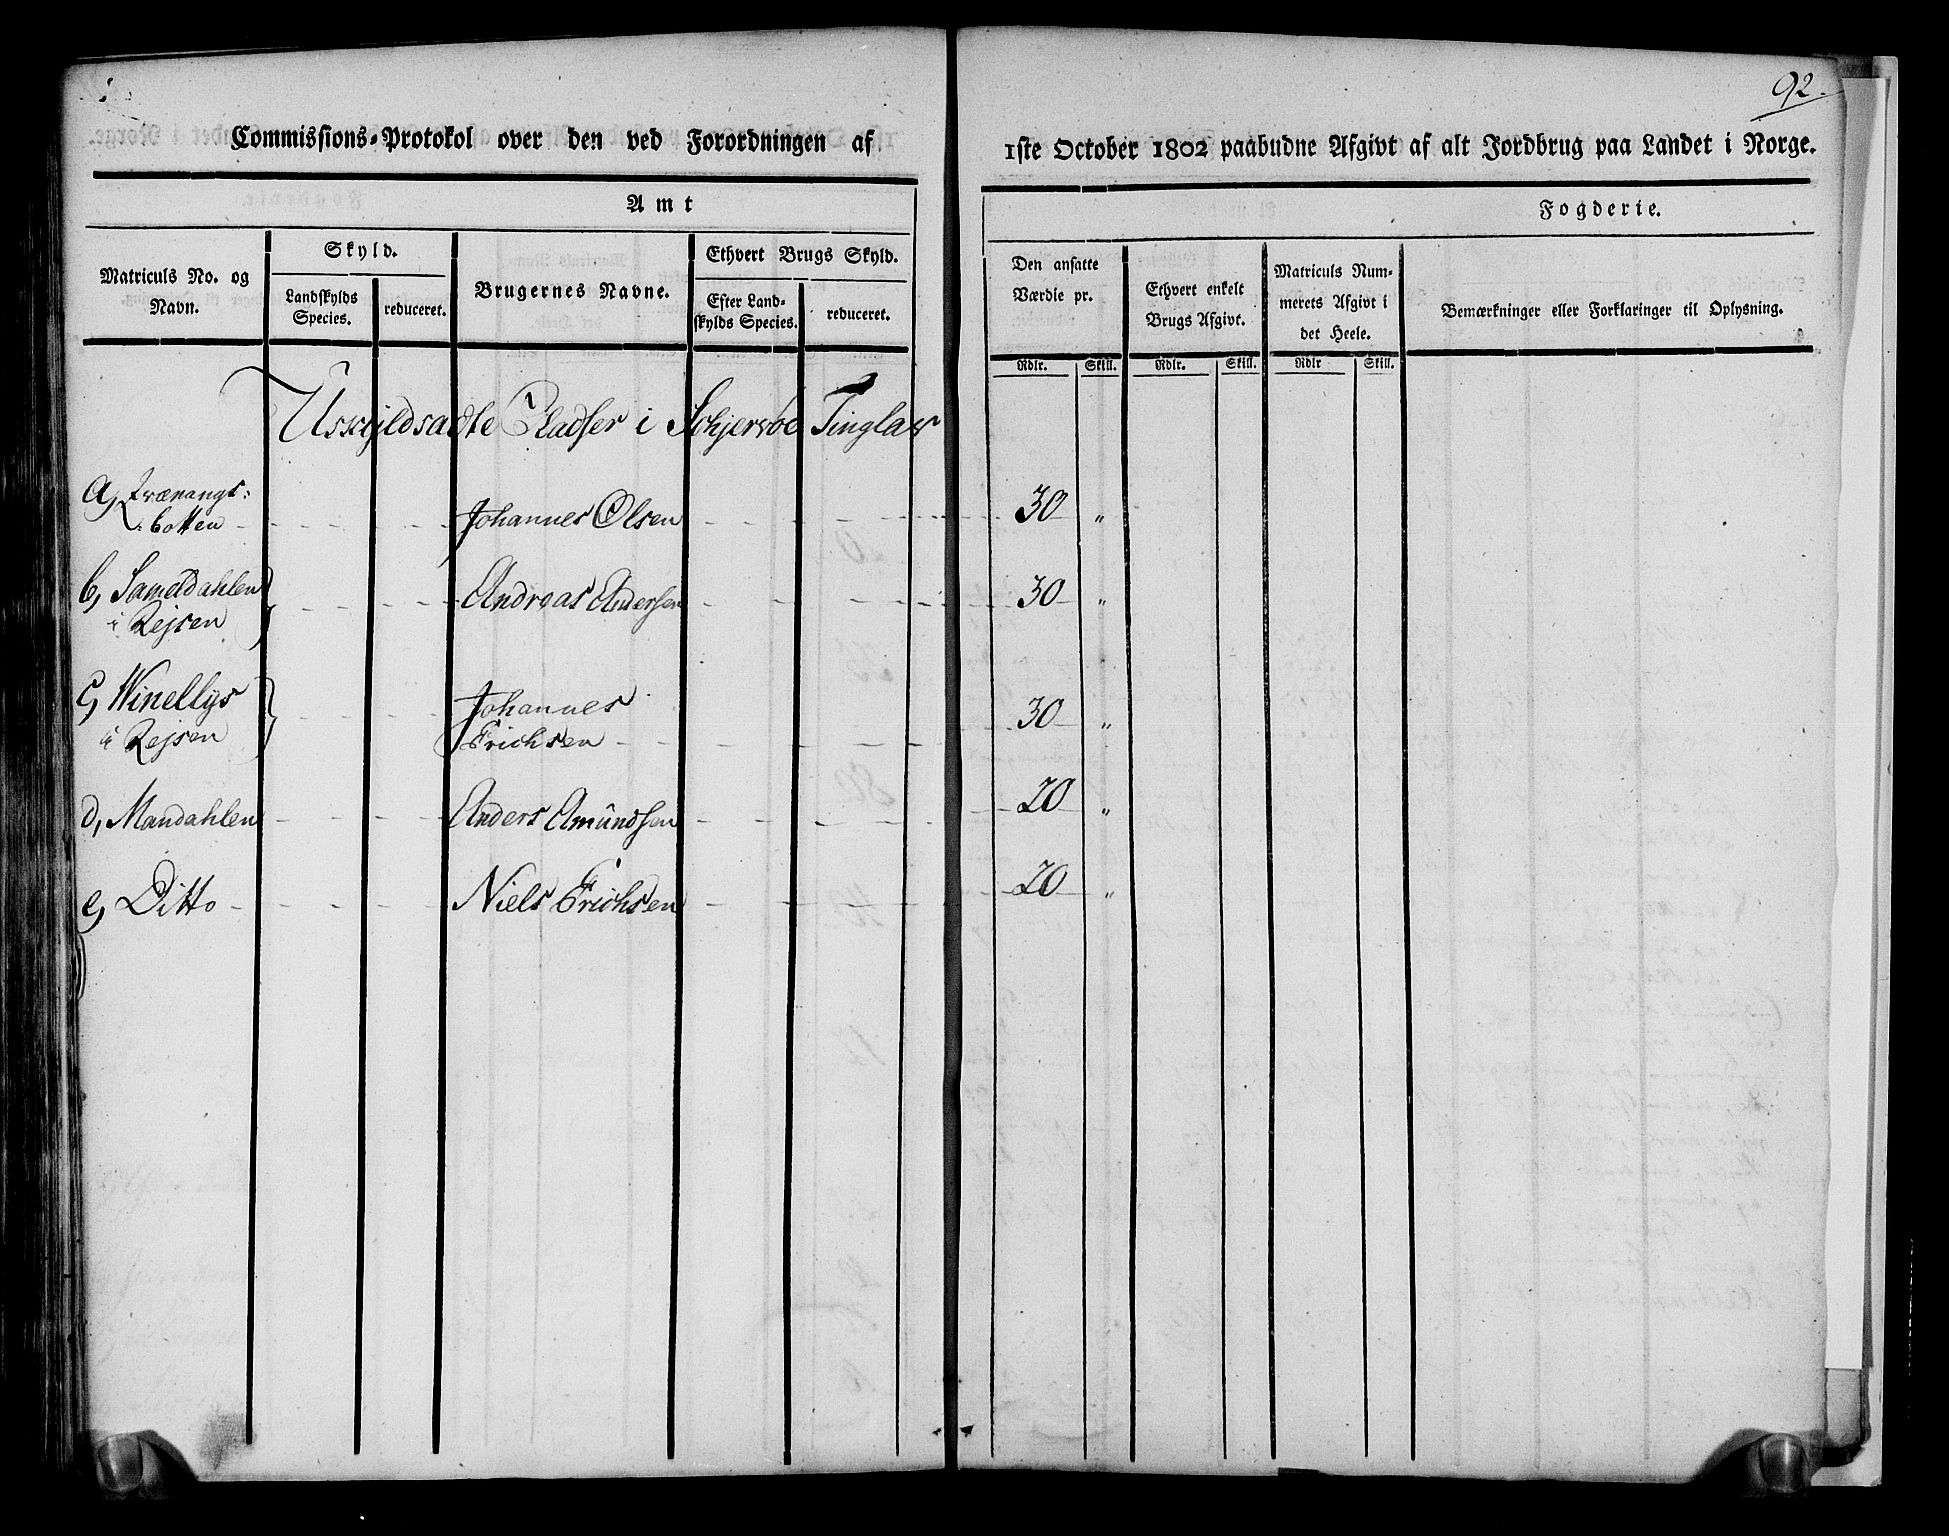 92.
Commissions-Protokol over den ved Forordningen af 1ste October 1802 paabudne Afgivt af alt Jordbrug paa Landet i Norge.
Amt
Fogderie.
Matriculs No. og Navn.
Skyld.
Landskylds Species.
reduceret.
Brugernes Navne.
Ethvert Brugs Skyld.
Efter Landskylds Species.
reduceret.
Den ansatte Værdie pr.
Rdlr. Skill.
Ethvert enkelt Brugs Afgivt.
Rdlr. Skill.
Matriculs Nummerets Afgivt i det Heele.
Rdlr Skill.
Bemærkninger eller Forklaringer til Oplysning.
Uskyldsadte Pladser i Schjersøe Tinglav
a, Qvænangs:
botten - - - - Johannes Olsen - - - - 30 "
b, Sameldahlen
i Rejsen - - - Andreas Andersen - - - - 30 "
c, Winellys
i Rejsen - - - Johannes
Erichsen - - - - 30 "
d, Mandahlen - - - Anders Amundsen - - - - 20 "
e, Ditto - - - - Niels Erichsen - - - - 20 "